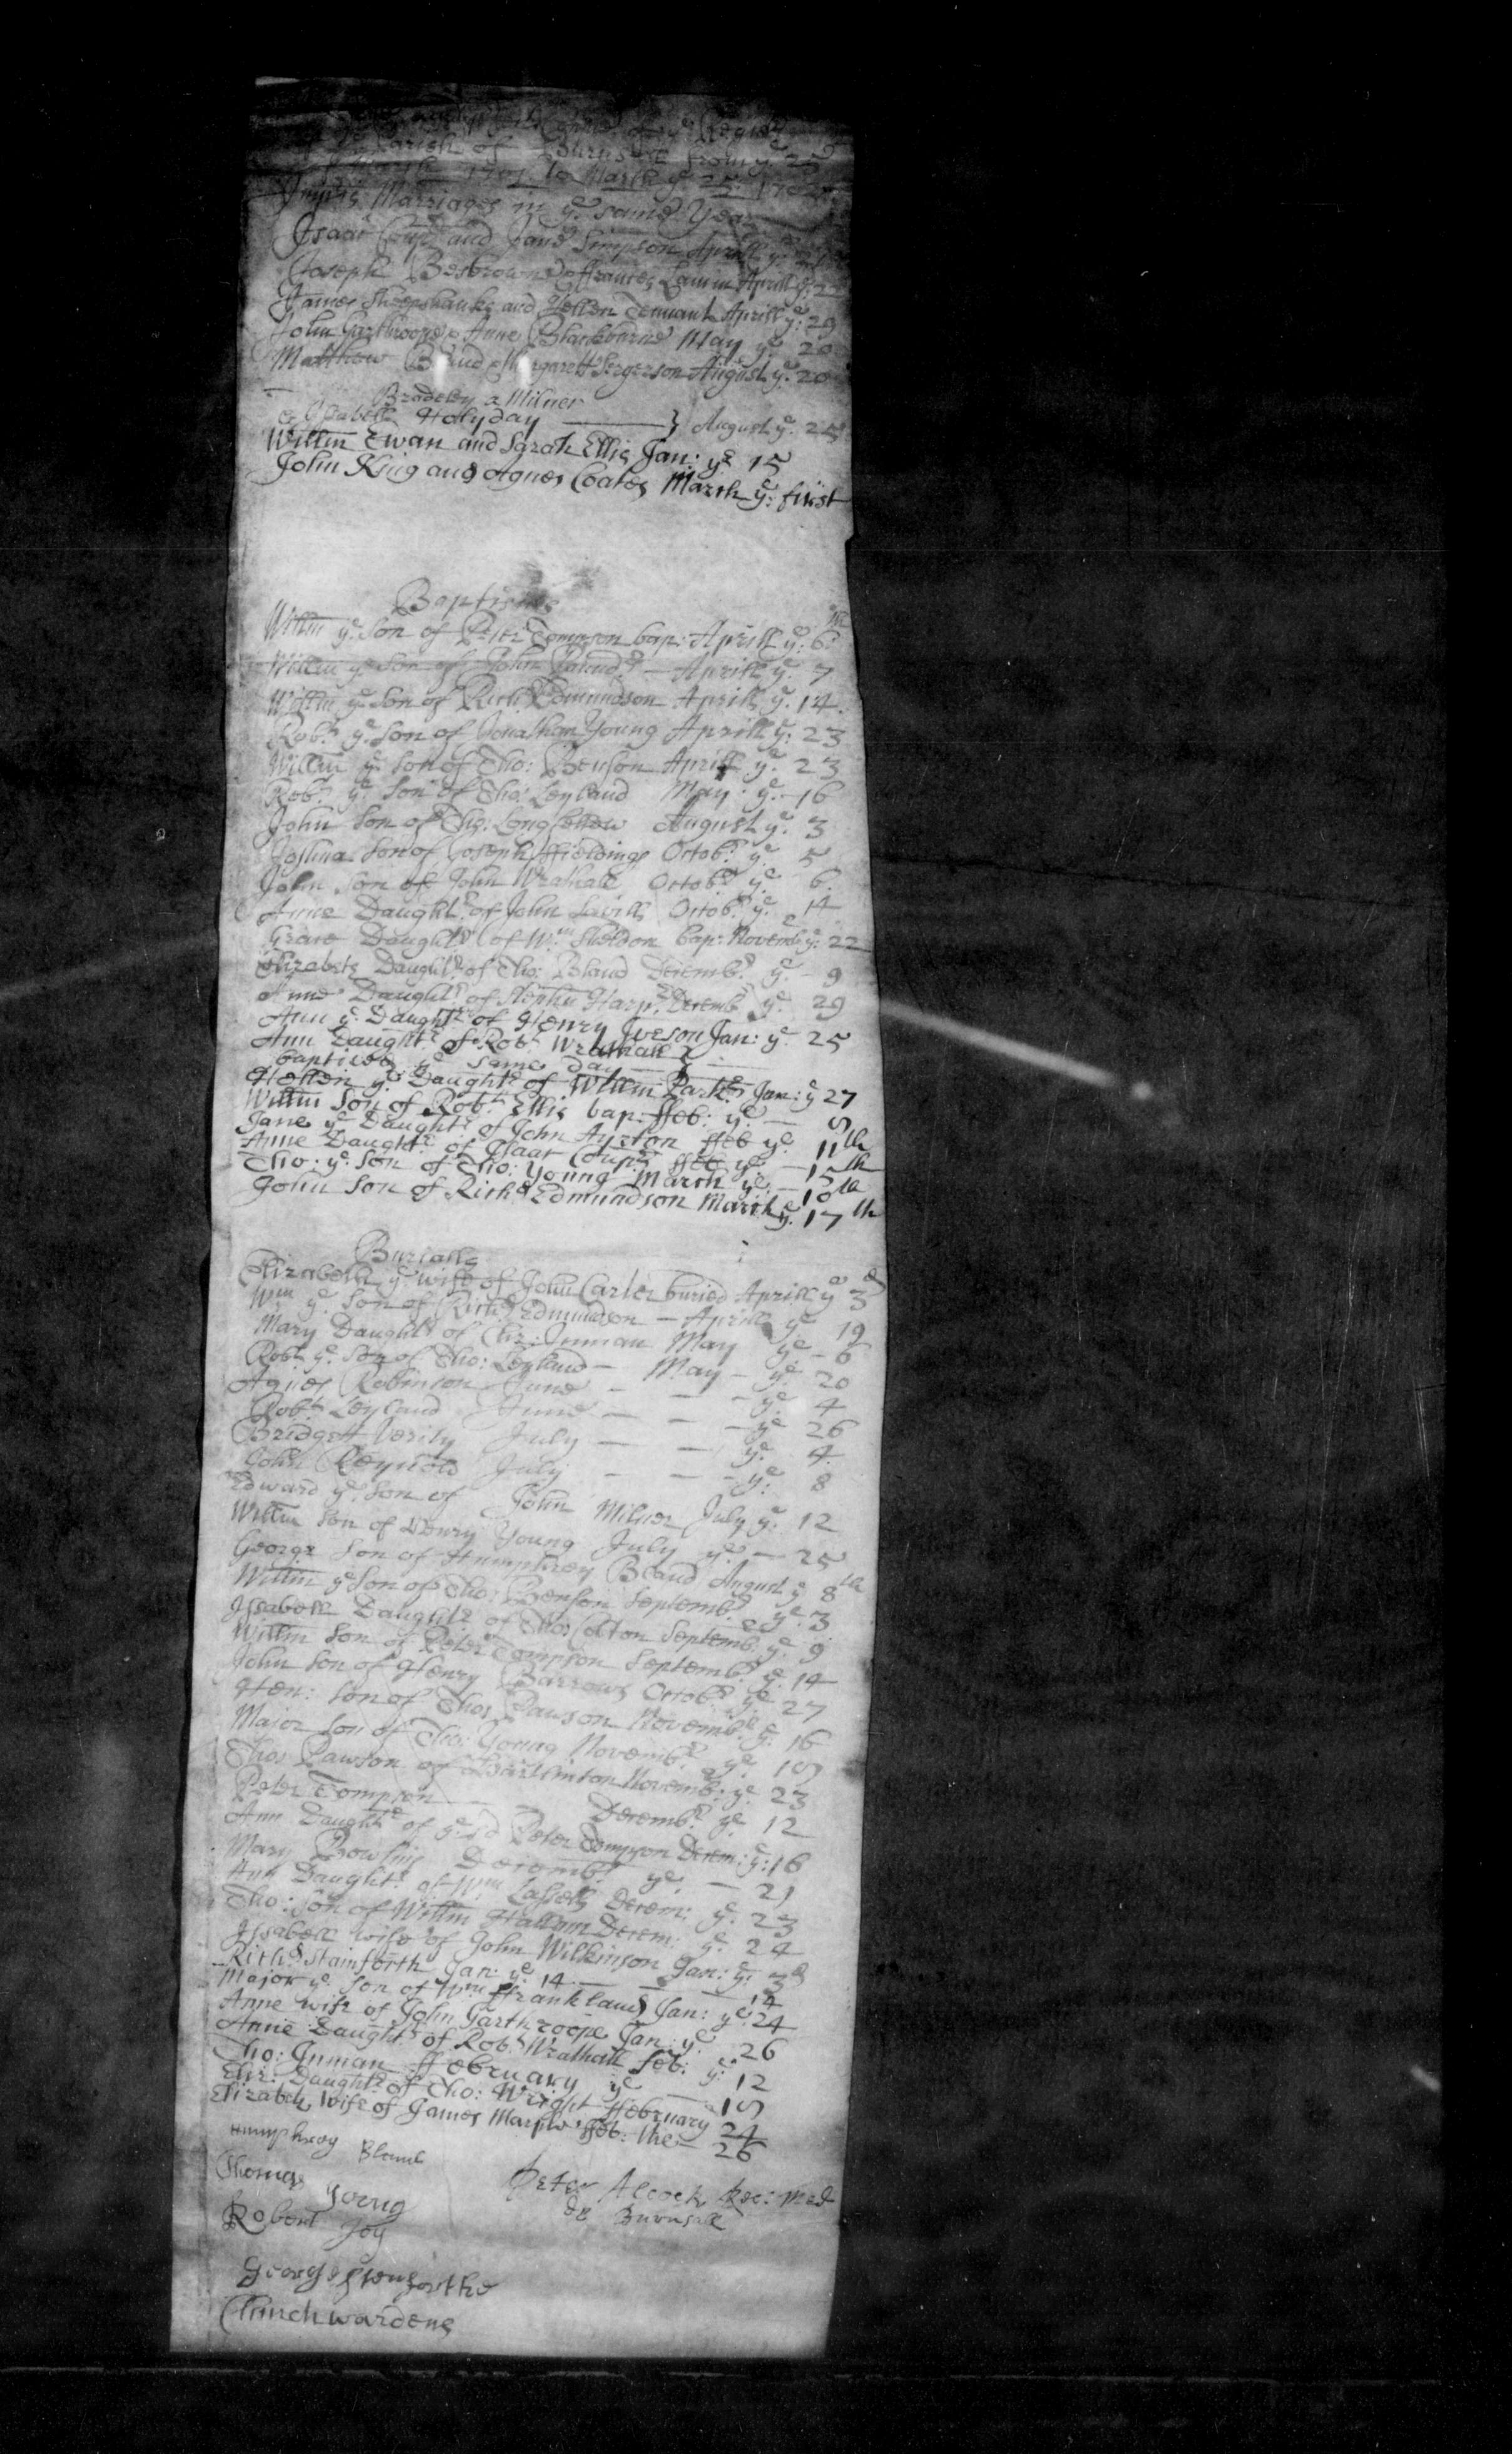 Parish of Burnsall from ye 25
March 1701 to March ye 25: 170
Impris Marriages in ye same Year
Isaac Coup and Jane Simpson Aprill ye 21
Joseph Besbrowne & ffrances Lawin Aprill ye: 22
James Sheepshanke and Hellen Tennant Aprill ye: 29
John Garthroope & Anne Blackborne May ye 20
Matthew Brand & Margarett Sergerson August ye: 20
Bradeley a Milner
& Isabell Holyday } August ye: 25
Willm Ewan and Sarah Ellis Jan: ye 15
John King and Agnes Coates March ye: first
Baptismes
Willm ye Son of Peter Tompson bap: Aprill ye: 6th
Willm ye Son of John — Aprill ye 7
Willm ye Son of Richd Edmundson Aprill ye. 14.
Robt ye. Son of Jonathan Young Aprill ye: 23
Willm ye Son of Tho: Benson Aprill ye. 23
Robt ye. Son of Tho: Leyland May: ye. 16
John Son of Tho: Longfellow August ye. 3
Joshua Son of Joseph ffieldinge Octobr ye 5
John Son of John Wrathall Octobr ye. 6.
Anne Daughtr of John Lavill Octobr ye. 14
Grace Daughtr of Wm Sheldon bap: Novembr ye: 22
Elizabeth Daughtr of Tho: Bland Decembr ye. - 9
Anne Daughtr of Stephn Harpr Decembr ye. 29
Ann ye Daughtr of Henry Iveson Jan: ye 25
Ann Daughtr of Robt Wrathall }
baptised ye same day — }
Hellen ye Daughtr of Willm Parkr Jan: ye 27
Willm Son of Robt Ellis bap: ffeb: ye — 5
Jane ye Daughtr of John Ayrton ffeb ye 11th
Anne Daughtr of Isaac Coupr ffeb ye. — 15th
Tho: ye. Son of Tho: Young March ye — 10th
John Son of Richd Edmundson March ye. 17th
Burialls
Elizabeth ye wife of John Carter buried Aprill ye 3d
Wm ye Son of Richd Edmundson — Aprill ye 19
Mary Daughtr of Chr: Inman May ye - 6
Robt ye. Son of Tho: Leyland — May — ye. 20
Agnes Robinson June — — — ye 4
Robt Leyland June — — — ye 26
Bridgett Verity July — — ye. 4.
John Reynold July — — — ye: 8
Edward ye. Son of John Milner July ye: 12
Willm Son of Henry Young July ye. — 25
George Son of Humphrey Bland August ye 8th
Willm ye Son of Tho: Benson Septembr ye. 3
Issabell Daughtr of Thos Colton Septembr ye 9
Willm Son of Peter Tompson Septembr ye 14
John Son of Henry Barrows Octobr ye 27
Hen: Son of Thos Pawson Novembr ye: 16
Major Son of Tho: Young Novembr ye. 19
Thos Pawson of Novembr ye. 23
Peter Tompson — — Decembr ye 12
Ann Daughtr of ye sd Peter Tompson Decem: ye: 16
Mary Bowling Decembr ye. — 21
Ann Daughtr of Wm Lassell Decem: ye. 23
Tho: Son of Willm Hallam Decem: ye 24
Issabell wife of John Wilkinson Jan: ye: 3d
Richd Stainforth Jan: ye 14 — — 14
Major ye. Son of Wm ffrankland Jan: ye 24
Anne wife of John Garthroope Jan: ye 26
Anne Daughtr of Robt Wrathall feb: ye: 12
Tho: Inman ffebruary ye — 15
Eliz: Daughtr of Tho: Wright ffebruary 24
Elizabeth Wife of James ffeb: the — 26
Humphrey Bland
Thomas Yorng
Robert Joy
Peter Alcock Rec: Med
de Burnsall
Church wardens